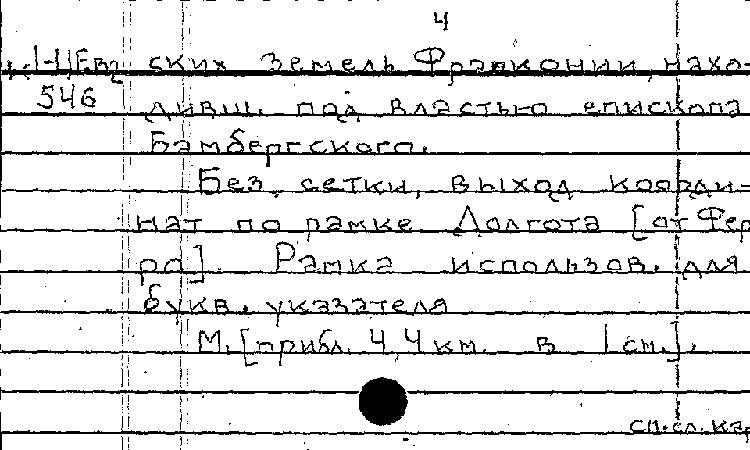 4
ских земель Франконии, нахо-
546 дивш. под властью епископа
Бамбергского.
Без сетки, выход коорди-
нат по рамке Долгота [от Фер
ро]. Рамка использов. для
букв. указателя
М. [прибл. 4,4 км. в 1 см.].
сп.сл. кар